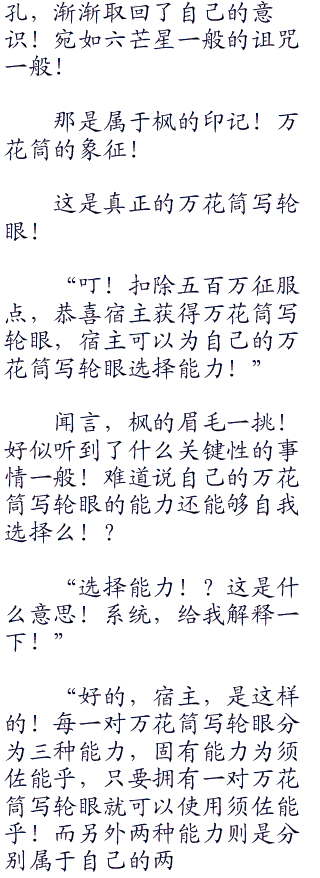 孔，渐渐取回了自己的意
识！宛如六芒星一般的诅咒
一般！
那是属于枫的印记！万
花筒的象征！
这是真正的万花筒写轮
眼！
“叮！扣除五百万征服
点，恭喜宿主获得万花筒写
轮眼，宿主可以为自己的万
花筒写轮眼选择能力！”
闻言，枫的眉毛一挑！
好似听到了什么关键性的事
情一般！难道说自己的万花
筒写轮眼的能力还能够自我
选择么！？
“选择能力！？这是什
么意思！系统，给我解释一
下！”
“好的，宿主，是这样
的！每一对万花筒写轮眼分
为三种能力，固有能力为须
佐能乎，只要拥有一对万花
筒写轮眼就可以使用须佐能
乎！而另外两种能力则是分
别属于自己的两